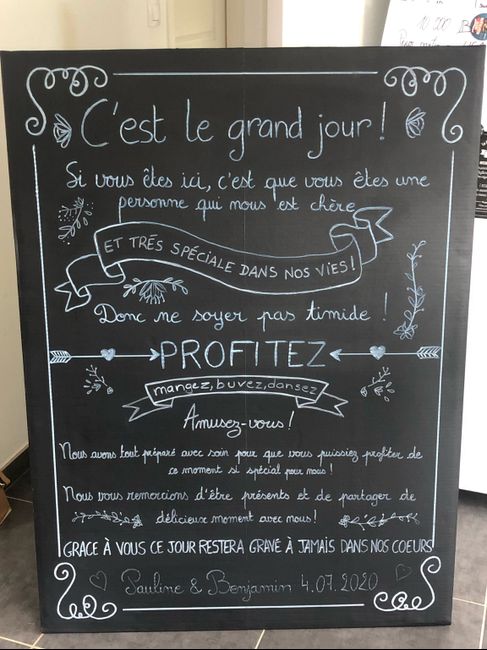 10 200
C'est le grand jour!
Si vous êtes ici, c'est que vous êtes une
personne qui nous est chère
ET TRÈS SPÉCIALE DANS NOS VIES!
Donc ne soyer pas timide !
PROFITEZ
mangez, buvez, dansez
Amusez-vous!
Nous avons tout préparé avec soin pour que vous puissiez profiter de
ce moment si spécial pour nous!
Nous vous remercions d'être présents et de partager de
délicieux moment avec nous!
GRACE À VOUS CE JOUR RESTERA GRAVÉ À JAMAIS DANS NOS COEURS
Pauline & Benjamin 4.07.2020